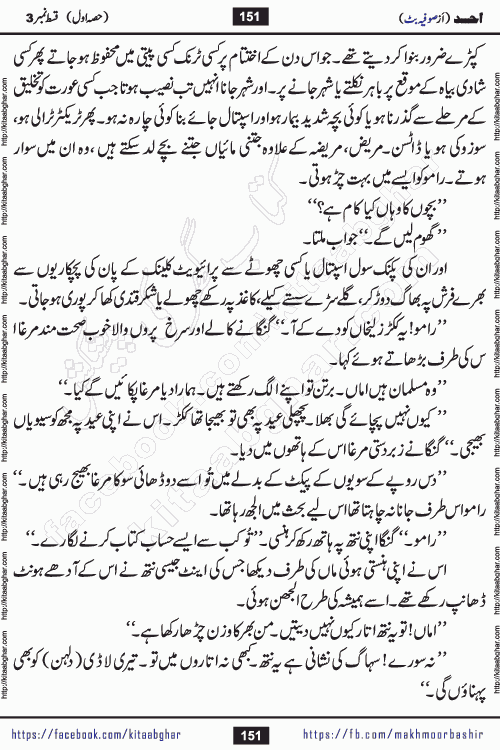 احمد (از صوفیہ بٹ)
151
(حصہ اول) قسط نمبر 3
کپڑے ضرور بنوا کر دیتے تھے۔ جو اس دن کے اختتام پر کسی ٹرنک کسی پیٹی میں محفوظ ہو جاتے پھر کسی
شادی بیاہ کے موقع پر باہر نکلتے یا شہر جانے پر۔ اور شہر جانا انہیں تب نصیب ہوتا جب کسی عورت کو تخلیق
کے مرحلے سے گذرنا ہو یا کوئی بچہ شدید بیمار ہو اور اسپتال جائے بنا کوئی چارہ نہ ہو۔ پھر ٹریکٹر ٹرالی ہو،
سوزوکی ہو یا ڈاٹسن۔ مریض، مریضہ کے علاوہ جتنی مائیاں جتنے بچے لد سکتے ہیں، وہ ان میں سوار
ہوتے۔ رامو کو ایسے میں بہت چڑ ہوتی۔
’’بچوں کا وہاں کیا کام ہے؟‘‘
’’گھوم لیں گے۔‘‘ جواب ملتا۔
اور ان کی پکنک سول اسپتال یا کسی چھوٹے سے پرائیویٹ کلینک کے پان کی پچکاریوں سے
بھرے فرش پہ بھاگ دوڑ کر، گلے سڑے سستے کیلے، کاغذ پہ رکھے چھولے یا شکر قندی کھا کر پوری ہو جاتی۔
’’رامو! یہ ککڑ زلیخاں کو دے کے آ۔‘‘ گنگا نے کالے اور سرخ پروں والا خوب صحت مند مرغا ا
س کی طرف بڑھاتے ہوئے کہا۔
’’وہ مسلمان ہیں اماں۔ برتن تو اپنے الگ رکھتے ہیں۔ ہمارا دیا مرغا پکائیں گے کیا۔‘‘
’’کیوں نہیں پچائے گی بھلا۔ پچھلی عید پہ بھی تو بھیجا تھا ککڑ۔ اس نے اپنی عید پہ مجھ کو سیویاں
بھیجی۔‘‘ گنگا نے زبردستی مرغا اس کے ہاتھوں میں دیا۔
’’دس روپے کے سویوں کے پیکٹ کے بدلے میں تُو اسے دو ڈھائی سو کا مرغا بھیج رہی ہیں۔‘‘
رامو اس طرف جانا نہ چاہتا تھا اس لیے بحث میں الجھ رہا تھا۔
’’رامو۔‘‘ گنگا اپنی نتھ پہ ہاتھ رکھ کر ہنسی۔ ’’تُو کب سے ایسے حساب کتاب کرنے لگا رے۔‘‘
اس نے اپنی ہنستی ہوئی ماں کی طرف دیکھا جس کی اینٹ جیسی نتھ نے اس کے آدھے ہونٹ
ڈھانپ رکھے تھے۔ اسے ہمیشہ کی طرح الجھن ہوئی۔
’’اماں! تو یہ نتھ اتار کیوں نہیں دیتیں۔ من بھر کا وزن چڑھا رکھا ہے۔‘‘
’’نہ سورے! سہاگ کی نشانی ہے یہ نتھ۔ کبھی نہ اتاروں میں تو۔ تیری لاڈی (دلہن) کو بھی
پہناؤں گی۔‘‘
https://facebook.com/kitaabghar
151
https://fb.com/makhmoorbashir
http://kitaabghar.com